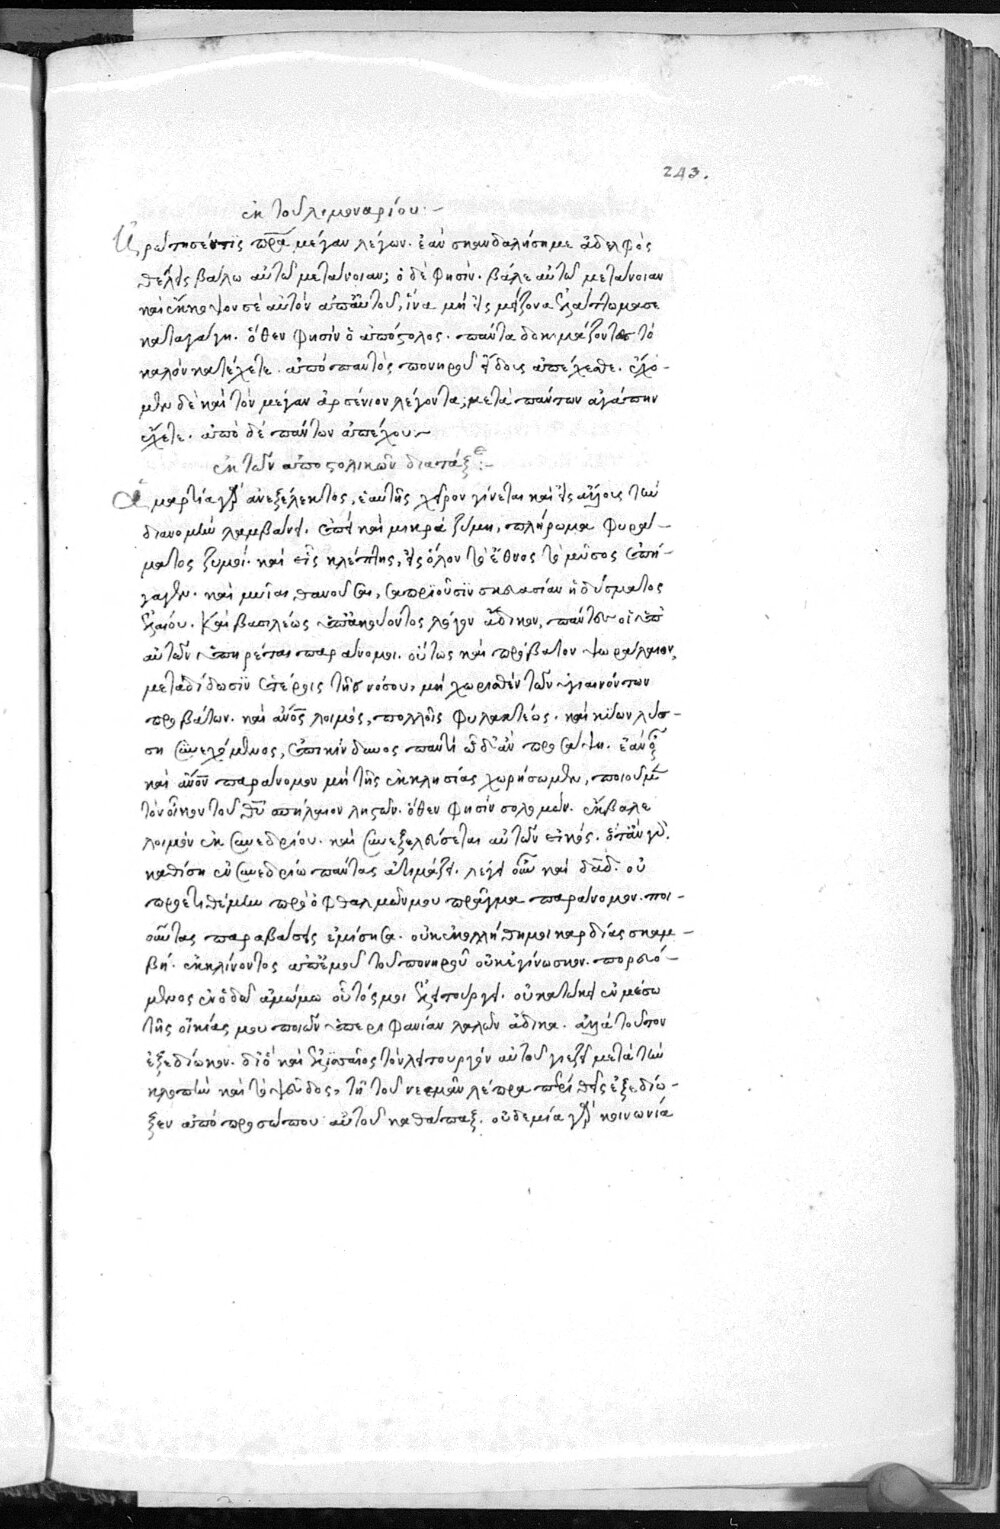 243.
ἐκ τοῦ λειμοναρίου:~
Ἐρώτησέ τις πρα μέγαν λέγων. ἐὰν σκανδαλήσῃ με ἀδελφὸς
θέλεις βάλω αὐτῶ μετάνοιαν; ὁ δέ φησίν. βάλε αὐτῶ μετάνοιαν
καὶ ἔκκοψον σὲ αὐτὸν ἀπ' αὐτοῦ, ἵνα μὴ εἰς μείζονα
καταγάγη. ὅθεν φησὶν ὁ ἀπόστολος. πάντα δοκιμάζοντες τὸ
καλὸν κατέχετε. ἀπὸ παντὸς πονηροῦ εἴδους ἀπέχεσθε. ἔχο-
μεν δὲ καὶ τὸν μέγαν ἀρσένιον λέγοντα; μετὰ πάντων ἀγάπην
ἔχετε. ἀπὸ δὲ πάντων ἀπέχου:~
ἐκ τῶν ἀποστολικῶν διατάξε:~
Ἁμαρτία γὰρ ἀνεξέλεκτος, ἑαυτῆς χείρον γίνεται καὶ εἰς ἄλλους τὴν
διανομὴν λαμβάνει. ἐπεὶ καὶ μικρὰ ζύμη, ὅλον φυρά-
ματος ζυμοῖ. καὶ εἷς κλέπτης, εἰς ὅλον τὸ ἔθνος τὸ μῦσος ἐπή-
γαγεν. καὶ μυῖαι θανοῦσαι, σαπριοῦσιν σκευασίαν ἡδύσματος
ἐλαίου. Καὶ βασιλέως ὑπακούοντος λόγον ἄδικον, πάντες οἱ ὑπ'
αὐτὸν ὑπηρέται παράνομοι. οὕτως καὶ πρόβατον ψωραλαῖον,
μεταδίδωσιν ἑτέροις τῆς νόσου, μὴ χωρισθὲν τῶν ὑγιαινόντων
προβάτων. καὶ ἄνος λοιμός, πολλοῖς φυλακτέως. καὶ κύων λυσ-
ση συνεχόμενος, ἐπικίνδυνος παντὶ ὧ δἂν προσψαύη. ἐὰν οὖν
καὶ ἄνον παράνομον μὴ τῆς ἐκκλησίας χωρήσωμεν, ποιοῦμεν
τὸν οἶκον τοῦ θυ σπήλαιον ληστῶν. ὅθεν φησὶν σολομών. ἔκβαλε
λοιμὸν ἐκ συνεδρίου. καὶ συνεξελεύσεται αὐτῶ νεῖκος. ὅταν γὰρ
καθίση ἐν συνεδρίω πάντας ἀτιμάζει. λέγει οὖν καὶ δαδ. οὐ
προετιθέμην πρὸ ὀφθαλμῶν μου πρᾶγμα παράνομον. ποι-
οῦντας παραβάσεις ἐμίσησα. οὐκ ἐκολλήθη μοι καρδία σκαμ-
βή. ἐκκλίνοντος ἀπ' ἐμοῦ τοῦ πονηροῦ οὐκ ἐγίνωσκον. πορευό-
μενος ἐν ὁδῶ ἀμώμω οὗτός μοι ἐλειτούργει. οὐ κατώκει ἐν μέσω
τῆς οἰκίας μου ποιῶν ὑπερηφανίαν λαλῶν ἄδικα. ἀλλὰ τοῦτον
ἐξεδίωκον. διὸ καὶ ἐλισσαῖος τὸν λειτουργὸν αὐτοῦ γιεζῆ μετὰ τὴν
κλοπὴν καὶ τὸ ψεῦδος, τῆ τοῦ νεεμὰν λέπρα περιθεὶς ἐξεδίω-
ξεν ἀπὸ προσώπου αὐτοῦ καθάπαξ. οὐδεμία γὰρ κοινωνία